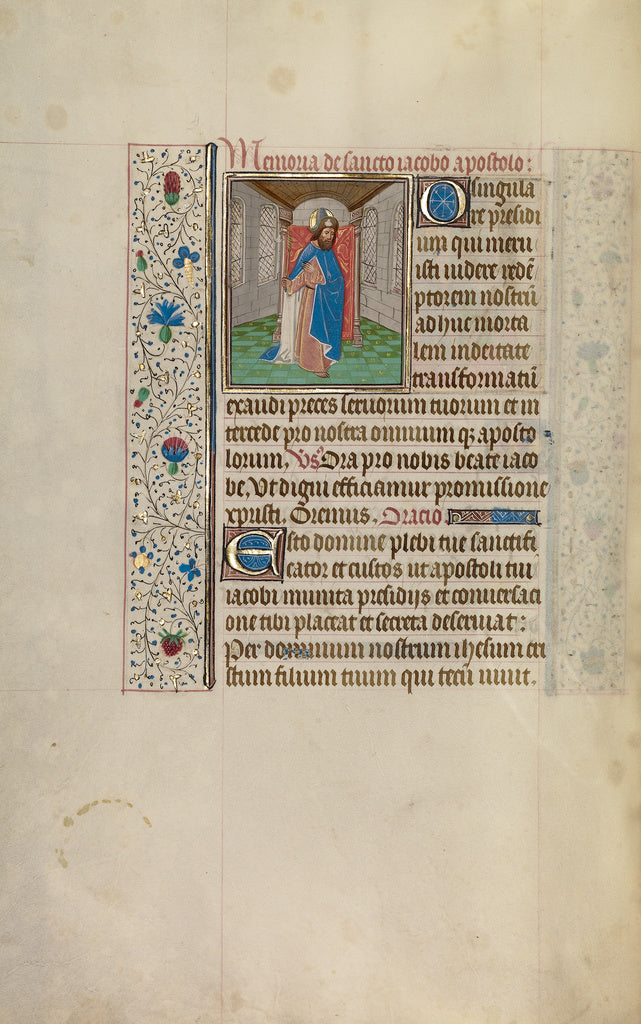 Memoria de sancto iacobo apostolo:
O singula
re presidi
um qui meru
isti uidere redē
ptorem nostrū
adhuc morta
lem in deitate
transformatū
exaudi preces seruorum tuorum et in
tercede pro nostra omnium q; aposto
lorum. Vs Ora pro nobis beate iaco
be, Vt digni efficiamur promissione
xpristi. Oremus. Oracio
Esto domine plebi tue sanctifi
cator et custos ut apostoli tui
iacobi munita presidijs et conuersaci
one tibi placeat et secreta deseruiat:
Per dominum nostrum ihesum cri
stum filium tuum qui tecū uiuit.